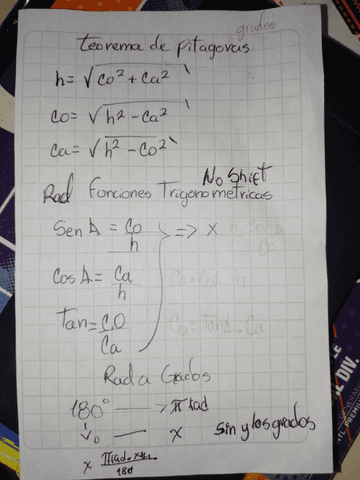 grados
teorema de pitagoras
h = √co² + ca²
co = √h² - ca²
ca = √h² - co²
No Shift
Rad Funciones Trigonometricas
Sen A = co/h => x
Cos A = ca/h
Tan = CO/Ca
Rad a Grados
180° → π rad
— x sin y los grados
x
180
DIV.